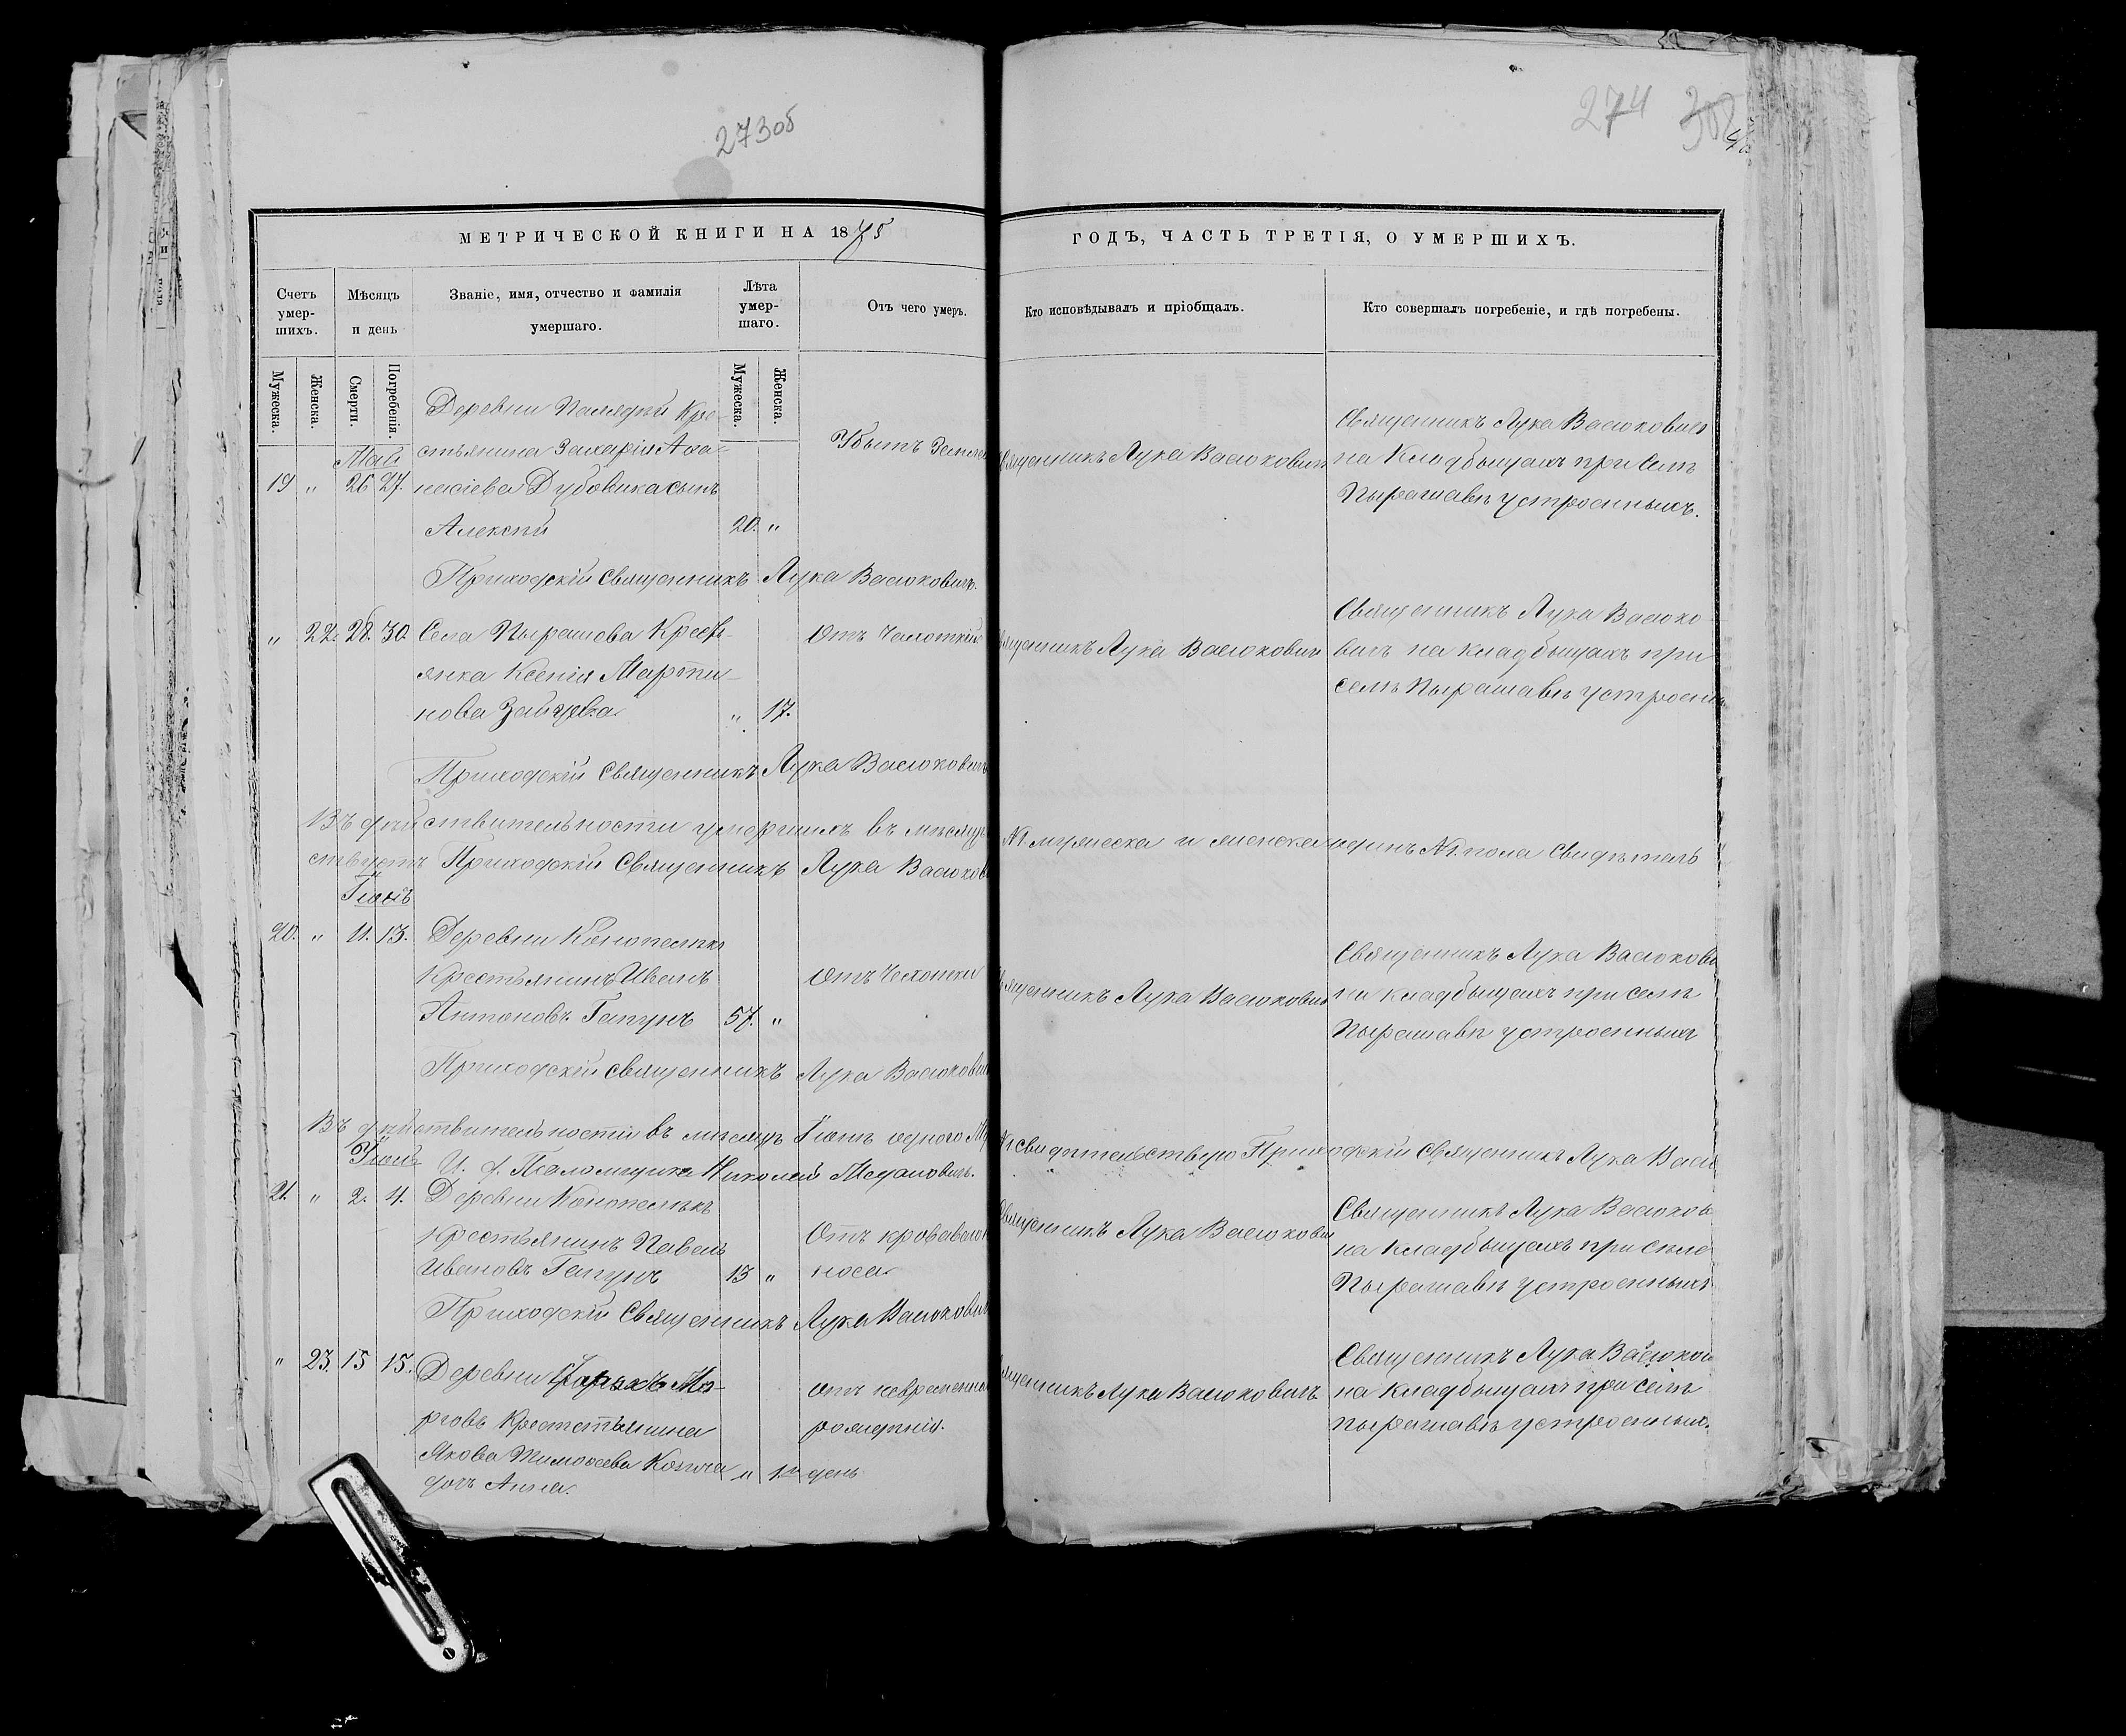 273об
274
МЕТРИЧЕСКОЙ КНИГИ НА 1875
ГОДЪ, ЧАСТЬ ТРЕТІЯ, О УМЕРШИХЪ.
Счетъ умер-шихъ.
Мѣсяцъ и день
Званіе, имя, отчество и фамилія умершаго.
Лѣта умер-шаго.
Отъ чего умеръ.
Кто исповѣдывалъ и пріобщалъ.
Кто совершалъ погребеніе, и гдѣ погребены.
Мужеска.
Женска.
Смерти.
Погребенія.
Мужеска.
Женска.
Май
19 " 26 27.
Деревни Кре-
стьянина Захарія Аѳа-
насіева Дубовика сынъ
Алексѣй
20. "
Убитъ
Священникъ Лука Васюковичъ
Священникъ Лука Васюковичъ
на Кладбищахъ при селѣ
Пырашавѣ устроенныхъ.
Приходскій Священникъ Лука Васюковичъ.
" 22. 28. 30.
Села Пырашова Кресть-
янка Ксенія Марти-
нова Зайцева
" 17.
Отъ Чахотки
Священникъ Лука Васюковичъ
Священникъ Лука Васюко-
вичъ на кладбищахъ при
селѣ Пырашавѣ устроен
Приходскій Священникъ Лука Васюковичъ
Въ дѣйствительности умершихъ въ мѣсяцѣ
№1. мужеска и женска одинъ №1. пола свидѣтель
ствуетъ Приходскій Священникъ Лука Васюков
Іюнь
20. " 11. 13.
Деревни
Крестьянинъ Иванъ
Антоновъ Гапунъ
57. "
Отъ Чахотки
Священникъ Лука Васюкович
Священникъ Лука Васюкови
на кладбищахъ при селѣ
Пырашавѣ устроенныхъ
Приходскій священникъ Лука Васюкович
Въ дѣйствительности въ мѣсяцѣ Іюнѣ одного
№1 свидѣтельствую Приходскій Священникъ Лука Васю
И. д. Псаломщика Николай
Іюль
21. " 2. 4.
Деревни
Крестьянинъ Павелъ
Ивановъ Гапунъ
13 "
Отъ кроваваго
носа
Священникъ Лука Васюкович
Священникъ Лука Васюков
на Кладбищахъ при селе
Пырашавѣ устроенныхъ
Приходскій Священникъ Лука Васюкович
" 23. 15 15.
Деревни
Крестстьянина
Якова Тимоѳеева
дочь Анна.
" 1. день
отъ
рожденія.
Священникъ Лука Васюковичъ
Священникъ Лука Васюков
на кладбищахъ при селѣ
пырашавѣ устроенных.